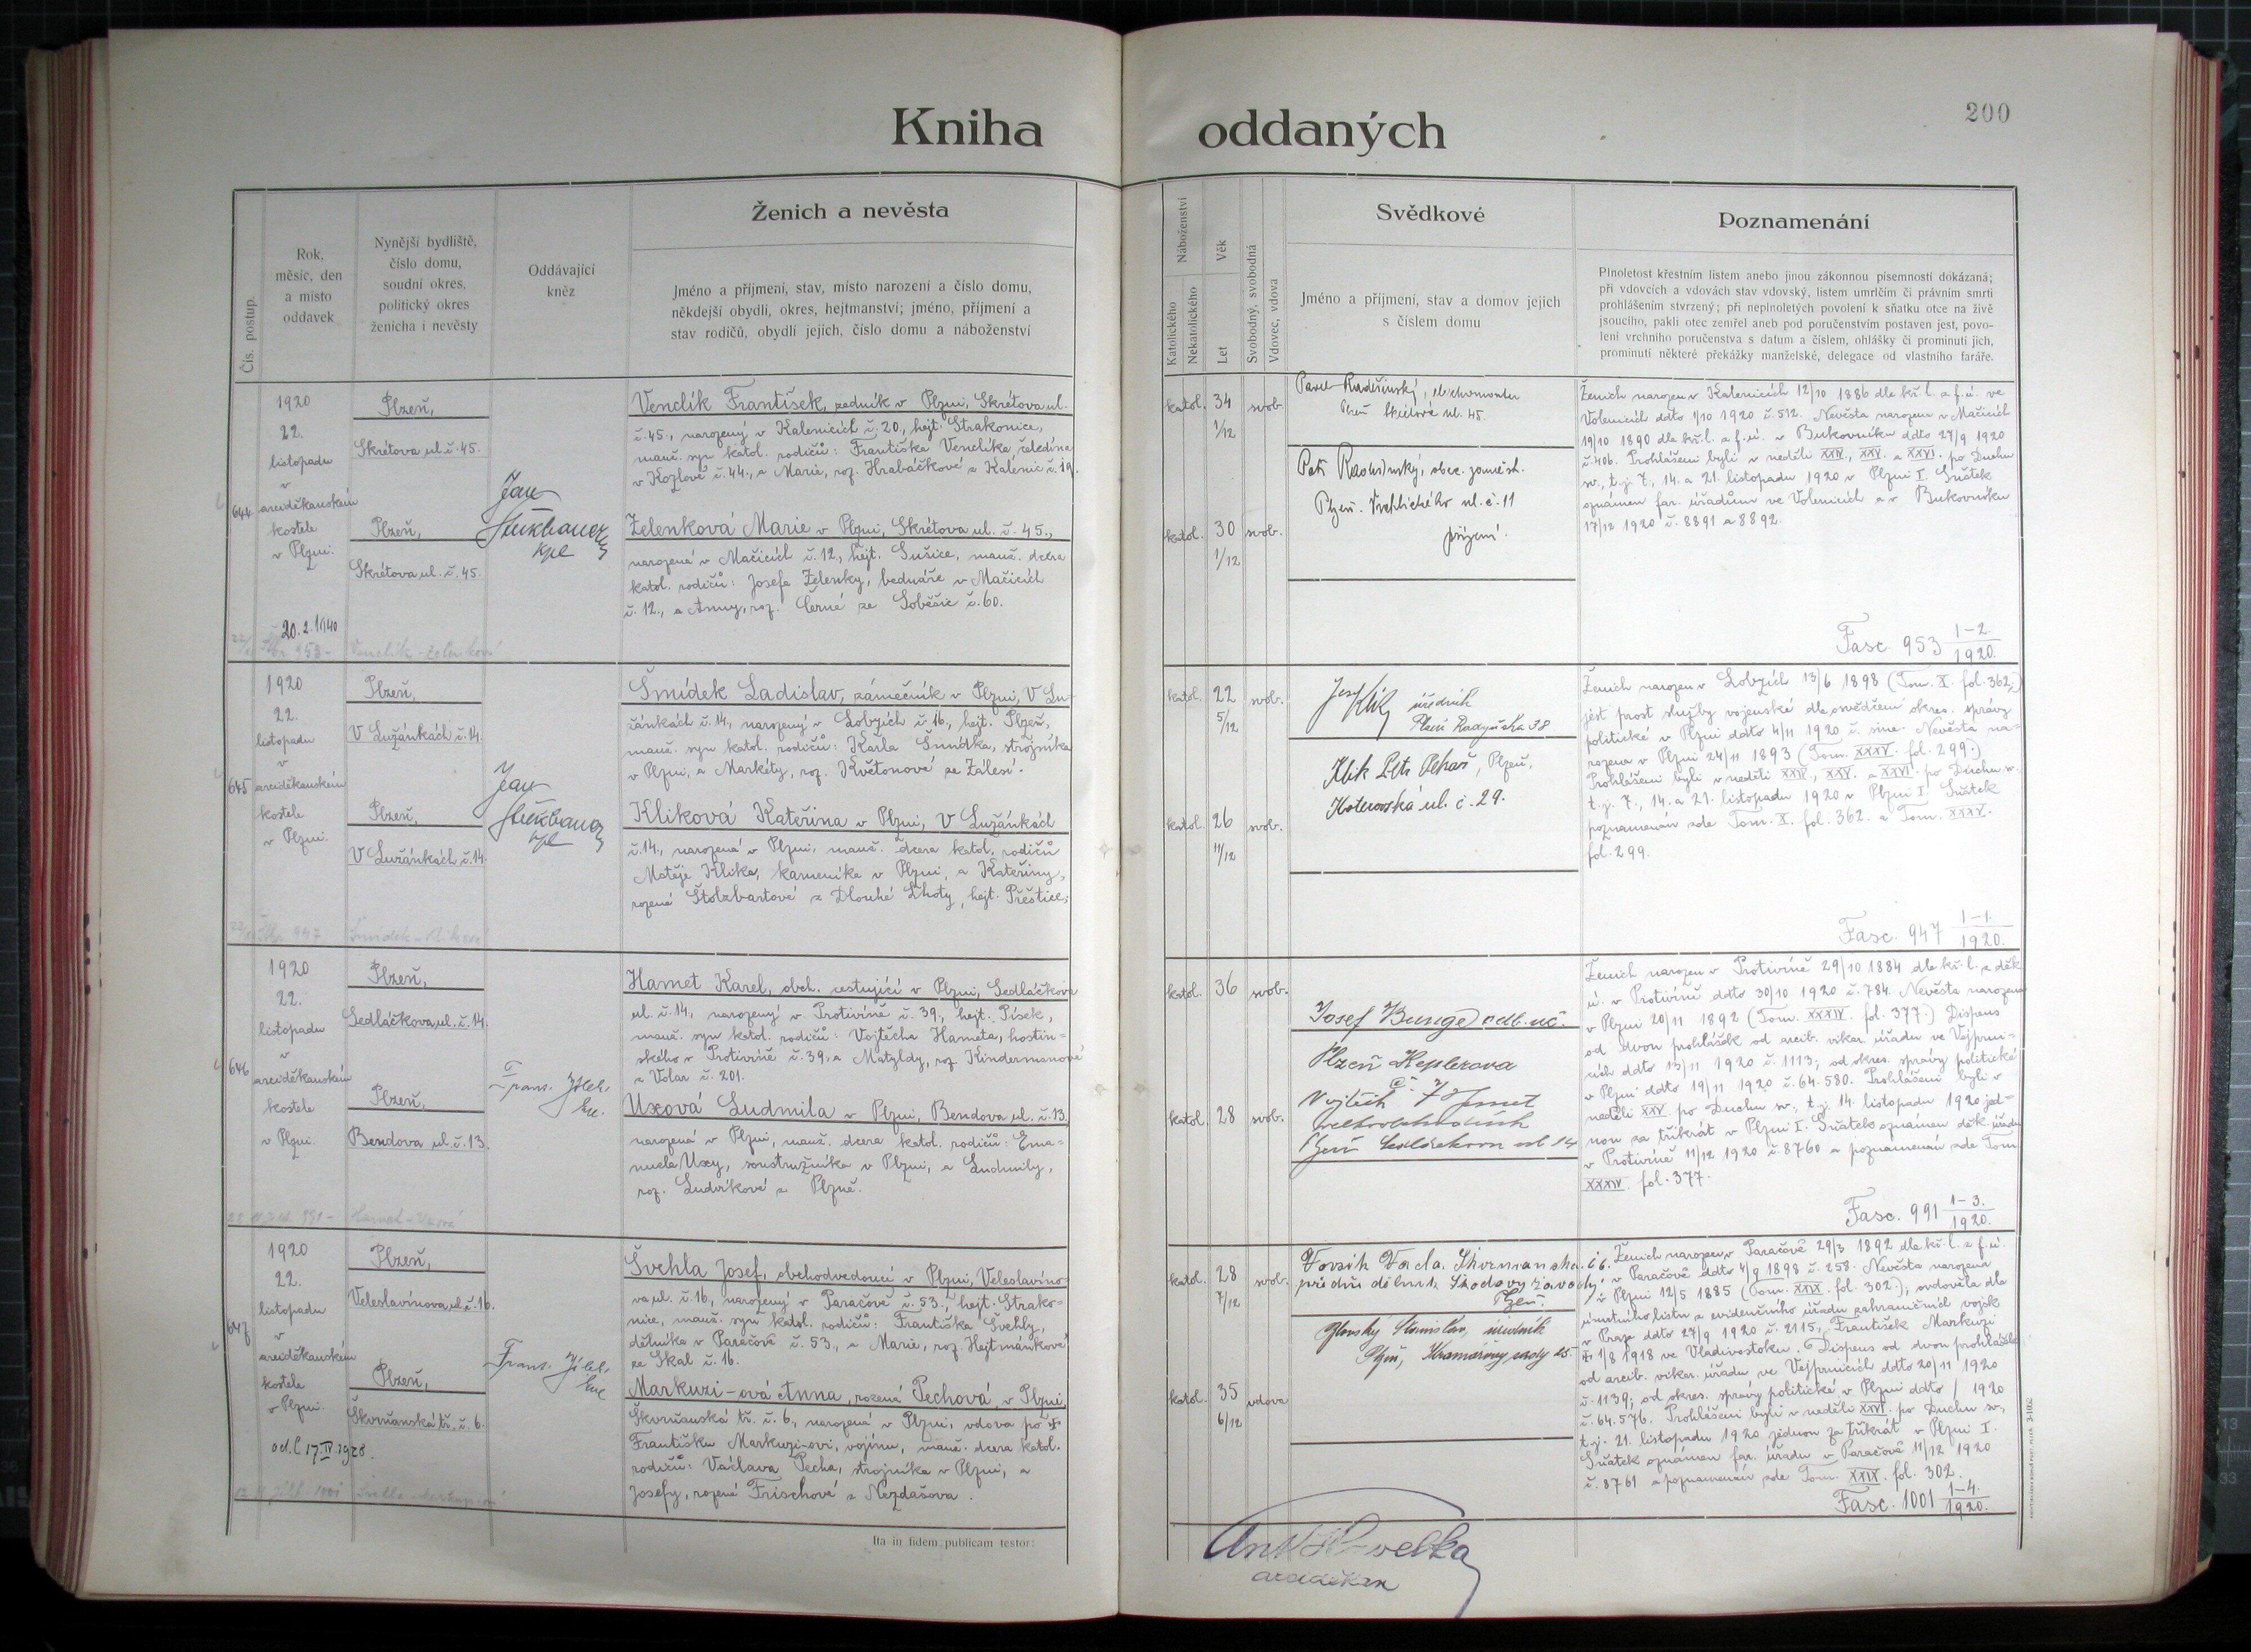 Kniha oddaných
200
Čís. postup.
Rok,
měsíc, den
a místo
oddavek
Nynější bydliště,
číslo domu,
soudní okres,
politický okres
ženicha i nevěsty
Oddávající
kněz
Ženich a nevěsta
Jméno a příjmení, stav, místo narození a číslo domu,
někdejší obydlí, okres, hejtmanství; jméno, příjmení a
stav rodičů, obydlí jejich, číslo domu a náboženství
Náboženství
Katolického
Nekatolického
Věk
Let
Svobodný, svobodná
Vdovec, vdova
Svědkové
Jméno a příjmení, stav a domov jejich
s číslem domu
Poznamenání
Plnoletost křestním listem anebo jinou zákonnou písemností dokázaná;
při vdovcích a vdovách stav vdovský, listem úmrtčím či právním smrti
prohlášením stvrzený; při neplnoletých povolení k sňatku otce na živě
jsoucího, pakli otec zemřel aneb pod poručenstvím postaven jest, povo-
lení vrchního poručenstva s datum a číslem, ohlášky či prominutí jich,
prominutí některé překážky manželské, delegace od vlastního faráře.
644
1920
22.
listopadu
v
arciděkanském
kostele
v Plzni.
20.2.1940
Plzeň,
Skrétova ul. č. 45.
Plzeň,
Skrétova ul. č. 45.
Jan
kpl
Venclík František, zedník v Plzni, Skrétova ul.
č. 45., narozený v Kalenicích č. 20., hejt. Strakonice,
manž. syn katol. rodičů: Františka Venclíka, čeledína
v Kozlově č. 44., a Marie, roz. Hrabáčkové z Kalenic č. 19.
Želenková Marie v Plzni, Skrétova ul. č. 45.,
narozená v Mačicích č. 12., hejt. Sušice, manž. dcera
katol. rodičů: Josefa Želenky, bednáře v Mačicích
č. 12., a Anny, roz. Černé ze Soběšic č. 60.
katol. 34 1/12 svob.
katol. 30 1/12 svob.
Plzeň Skrétova ul. 45.
Petr
Plzeň. Vrchlického ul. č. 11
Ženich narozen v Kalenicích 12/10 1886 dle kř. l. z f. ú. ve
Volenicích ddto 1/10 1920 č. 512. Nevěsta narozena v Mačicích
19/10 1890 dle kř. l. z f. ú. v Bukovníku ddto 27/9 1920
č. 406. Prohlášeni byli v neděli XXIV., XXV. a XXVI. po Duchu
sv., t. j. 7., 14. a 21. listopadu 1920 v Plzni I. Sňatek
oznámen far. úřadům ve Volenicích a v Bukovníku
17/12 1920 č. 8891 a 8892.
Fasc. 953 1-2./1920.
645
1920
22.
listopadu
v
arciděkanském
kostele
v Plzni.
Plzeň,
V Lužánkách č. 14.
Plzeň,
V Lužánkách č. 14.
Jan
kpl
Šmídek Ladislav, zámečník v Plzni, V Lu-
žánkách č. 14., narozený v Lobzích č. 16., hejt. Plzeň,
manž. syn katol. rodičů: Karla Šmídka, strojníka
v Plzni, a Markéty, roz. Květonové ze Zálesí.
Kliková Kateřina v Plzni, V Lužánkách
č. 14., narozená v Plzni, manž. dcera katol. rodičů
Matěje Klika, kameníka v Plzni, a Kateřiny,
rozené Štolzbartové z Dlouhé Lhoty, hejt. Přeštice.
katol. 22 5/12 svob.
katol. 26 11/12 svob.
Josef Klik, úředník
Plzeň Radyňská 38
Klik Petr Pekař, Plzeň,
Koterovská ul. č. 29.
Ženich narozen v Lobzích 13/6 1898 (Tom. X. fol. 362.;)
jest prost služby vojenské dle osvědčení okres. správy
politické v Plzni ddto 4/11 1920 č. sine. Nevěsta na-
rozena v Plzni 24/11 1893 (Tom. XXXV. fol. 299.)
Prohlášeni byli v neděli XXIV., XXV. a XXVI. po Duchu sv.,
t. j. 7., 14. a 21. listopadu 1920 v Plzni I. Sňatek
poznamenán zde Tom. X. fol. 362. a Tom. XXXV.
fol. 299.
Fasc. 947 1-1./1920.
646
1920
22.
listopadu
v
arciděkanském
kostele
v Plzni.
Plzeň,
Sedláčkova ul. č. 14.
Plzeň,
Bendova ul. č. 13.
Frant.
Hamet Karel, obch. cestující v Plzni, Sedláčkova
ul. č. 14., narozený v Protivíně č. 39., hejt. Písek,
manž. syn katol. rodičů: Vojtěcha Hameta, hostin-
ského v Protivíně č. 39, a Matyldy, roz. Kindermanové
z Volar č. 201.
Uxová Ludmila v Plzni, Bendova ul. č. 13.
narozená v Plzni, manž. dcera katol. rodičů: Ema-
nuela Uxy, soustružníka v Plzni, a Ludmily,
roz. Ludvíkové z Plzně.
katol. 36 svob.
katol. 28 svob.
Josef Bunge odb. uč.
Plzeň Keplerova
Vojtěch
Plzeň Sedláčkova ul 14
Ženich narozen v Protivíně 29/10 1884 dle kř. l. z děk.
ú. v Protivíně ddto 30/10 1920 č. 784. Nevěsta narozena
v Plzni 20/11 1892 (Tom. XXXIV. fol. 377.) Dispens
od dvou prohlášek od arcib. vikar. úřadu ve Vejprni-
cích ddto 13/11 1920 č. 1113; od okres. správy politické
v Plzni ddto 19/11 1920 č. 64.580. Prohlášeni byli v
neděli XXV. po Duchu sv., t. j. 14. listopadu 1920 jed-
nou za třikrát v Plzni I. Sňatek oznámen děk. úřadu
v Protivíně 11/12 1920 č. 8760 a poznamenán zde Tom
XXXIV. fol. 377.
Fasc. 991 1-3./1920.
647
1920
22.
listopadu
v
arciděkanském
kostele
v Plzni.
17.IV.1928.
Plzeň,
Veleslavínova ul. č. 16.
Plzeň,
Škvrňanská tř. č. 6.
Frant.
Švehla Josef, obchodvedoucí v Plzni, Veleslavíno-
va ul. č. 16, narozený v Paračově č. 53., hejt. Strako-
nice, manž. syn katol. rodičů: Františka Švehly,
dělníka v Paračově č. 53., a Marie, roz. Hejtmánkové
ze Skal č. 16.
Markuzi-ová Anna, rozená Pechová, v Plzni,
Škvrňanská tř. č. 6., narozená v Plzni, vdova po ✠
Františku Markuzi-ovi, vojínu, manž. dcera katol.
rodičů: Václava Pecha, strojníka v Plzni, a
Josefy, rozené Frischové z Nezdašova.
katol. 28 7/12 svob.
katol. 35 6/12 vdova
Plzeň.
Stanislav, úředník
Plzeň, Kramářovy sady 25.
Ženich narozen v Paračově 29/3 1892 dle kř. l. z f. ú.
v Paračově ddto 4/9 1898 č. 258. Nevěsta narozena
v Plzni 12/5 1885 (Tom. XXIX. fol. 302.), ovdověla dle
úmrtního listu z evidenčního úřadu zahraničních vojsk
v Praze ddto 27/9 1920 č. 2115., František Markuzi
✠ 1/8 1918 ve Vladivostoku. Dispens od dvou prohlášek
od arcib. vikar. úřadu ve Vejprnicích ddto 20/11 1920
č. 1139; od okres. správy politické v Plzni ddto / 1920
č. 64.576. Prohlášeni byli v neděli XXVI. po Duchu sv.,
t. j. 21. listopadu 1920 jednou za třikrát v Plzni I.
Sňatek oznámen far. úřadu v Paračově 11/12 1920
č. 8761 a poznamenán zde Tom. XXIX. fol. 302.
Fasc. 1001 1-4./1920.
Ita in fidem publicam testor:
Ant. Havelka
arciděkan